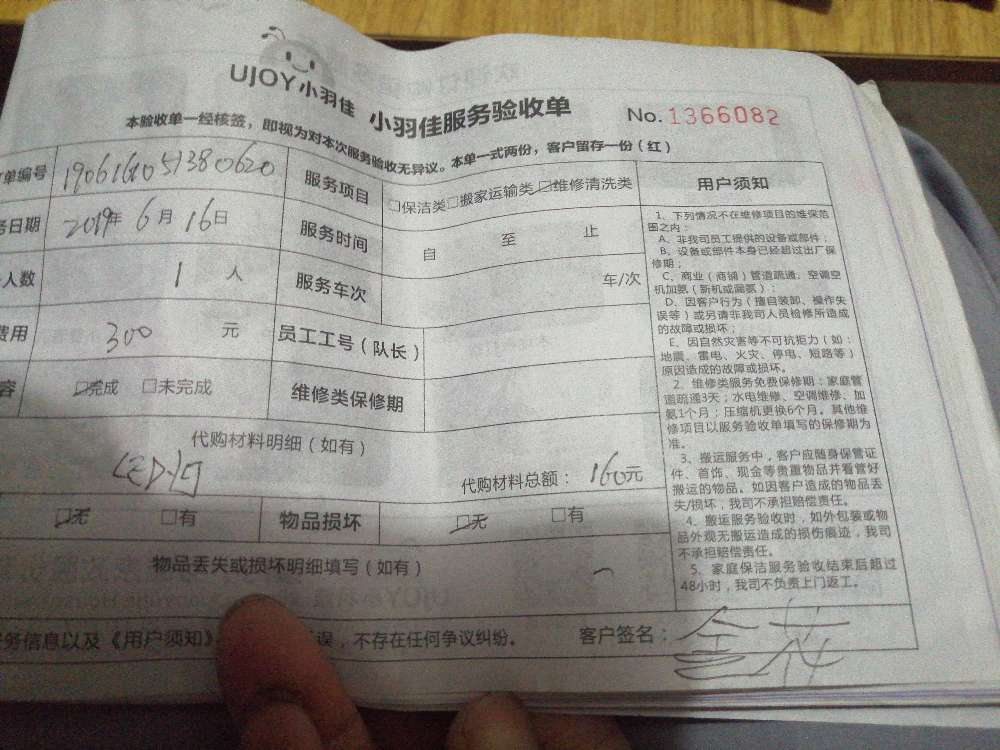 UJOY小羽佳 小羽佳服务验收单 No.1366082
本验收单一经核签，即视为对本次服务验收无异议。本单一式两份，客户留存一份（红）
单编号 服务项目 □保洁类□搬家运输类□维修清洗类
务日期 2019年 6月 16日 服务时间 自 至 止
人数 1 人 服务车次 车/次
费用 300 元 员工工号（队长）
容 □完成 □未完成 维修类保修期
代购材料明细（如有）
LED灯 代购材料总额：160元
□无 □有 物品损坏 □无 □有
物品丢失或损坏明细填写（如有）
务信息以及《用户须知》 误，不存在任何争议纠纷。 客户签名：
用户须知
1、下列情况不在维修项目的维保范
围之内：
A、非我司员工提供的设备或部件；
B、设备或部件本身已经超过出厂保
修期；
C、商业（商铺）管道疏通、空调空
机加氨（新机或漏氨）；
D、因客户行为（擅自装卸、操作失
误等）或另请非我司人员检修所造成
的故障或损坏；
E、因自然灾害等不可抗拒力（如：
地震、雷电、火灾、停电、短路等）
原因造成的故障或损坏。
2、维修类服务免费保修期：家庭管
道疏通3天；水电维修、空调维修、加
氨1个月；压缩机更换6个月。其他维
修项目以服务验收单填写的保修期为
准。
3、搬运服务中，客户应随身保管证
件、首饰、现金等贵重物品并看管好
搬运的物品。如因客户造成的物品丢
失/损坏，我司不承担赔偿责任。
4、搬运服务验收时，如外包装或物
品外观无搬运造成的损伤痕迹，我司
不承担赔偿责任。
5、家庭保洁服务验收结束后超过
48小时，我司不负责上门返工。